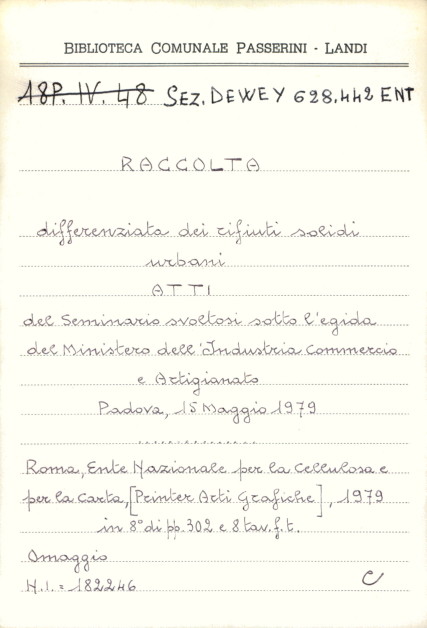 BIBLIOTECA COMUNALE PASSERINI - LANDI
18P. IV. 48 SEZ. DEWEY 628.442 ENT
RACCOLTA
differenziata dei rifiuti solidi
urbani
ATTI
del Seminario svoltosi sotto l'egida
del Ministero dell'Industria Commercio
e Artigianato
Padova, 15 Maggio 1979
..............
Roma, Ente Nazionale per la Cellulosa e
per la Carta, [Printer Arti Grafiche], 1979
in 8° di pp. 302 e 8 tav. f. t.
Omaggio
N.I. = 182246 C